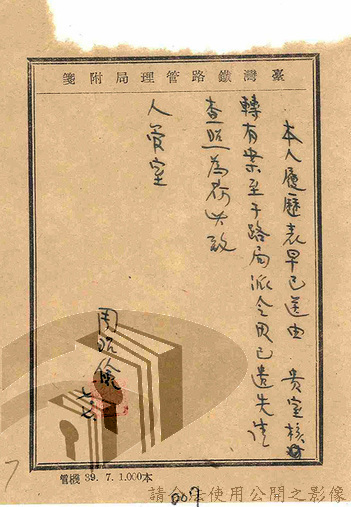 臺灣鐵路管理局附箋
本人履歷表早已送由 貴室核
轉有案至于路局派令因已遺失請
查照為荷此致
人事室
周昭儉
七七
管機 39.7.1.000本
請合法使用公開之影像
007
7